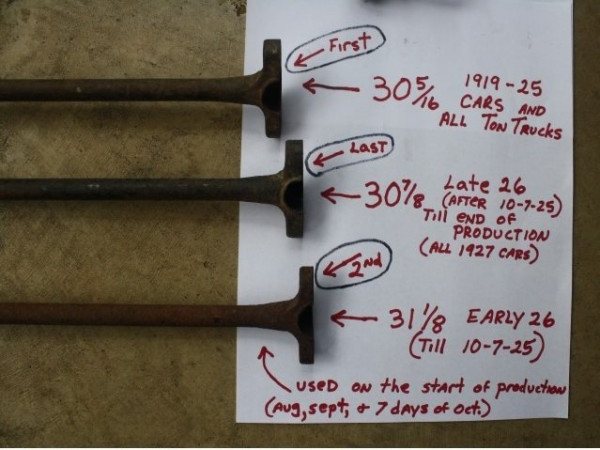 First
30 5/16 1919-25
CARS AND
ALL TON TRUCKS
Last
30 7/8 Late 26
(AFTER 10-7-25)
Till END OF
PRODUCTION
(ALL 1927 CARS)
2nd
31 1/8 EARLY 26
(Till 10-7-25)
USED ON the START OF PRODUCTION
(Aug, sept, + 7 days of Oct.)